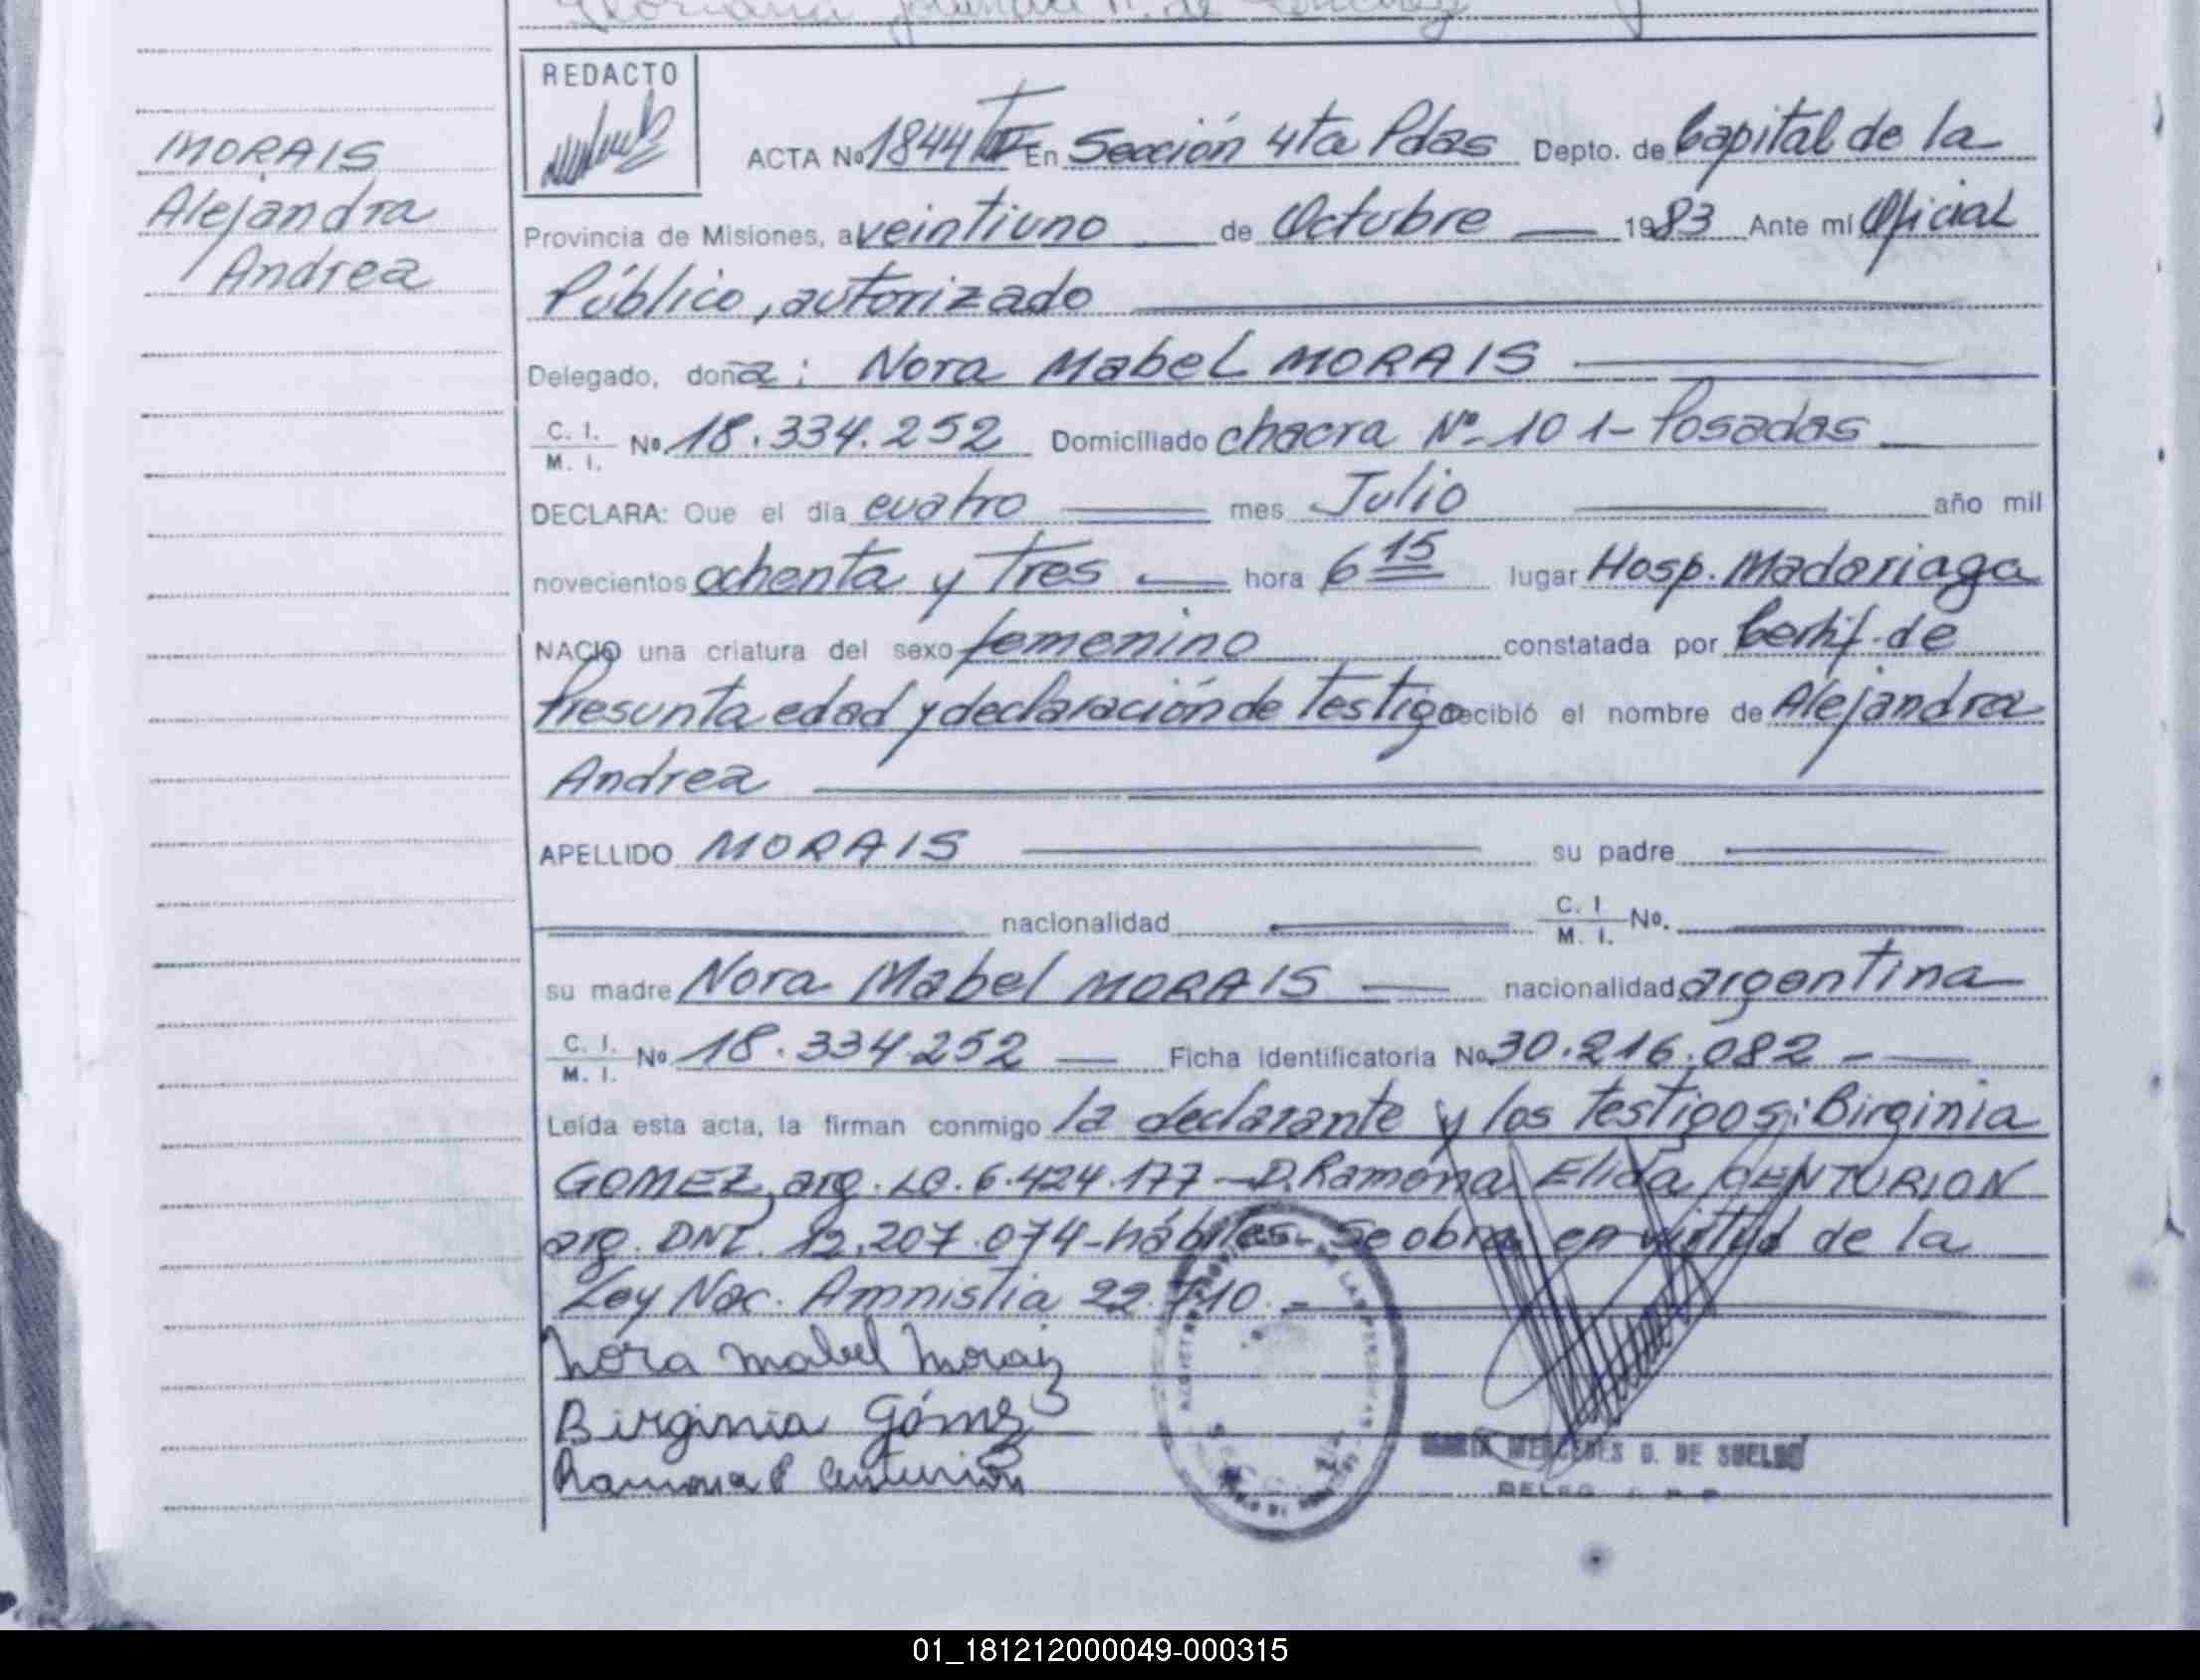 REDACTO
MORAIS
Alejandra
Andrea
ACTA No 1844 En Sección 4ta Pdas Depto. de Capital de la
Provincia de Misiones, a veintiuno de Octubre 1983 Ante mí Oficial
Público, autorizado
Delegado, doña: Nora Mabel MORAIS
C. I. M. I. No 18.334.252 Domiciliado chacra Nº 101-Posadas
DECLARA: Que el día cuatro mes Julio año mil
novecientos ochenta y tres hora 6 15 lugar Hosp. Madariaga
NACIO una criatura del sexo femenino constatada por Certif. de
Presunta edad y declaración de testigo recibió el nombre de Alejandra
Andrea
APELLIDO MORAIS su padre
nacionalidad C. I M. I. No.
su madre Nora Mabel MORAIS nacionalidad argentina
C. I. M. I. No 18.334.252 Ficha identificatoria No 30.216.082 -
Leída esta acta, la firman conmigo la declarante y los testigos: Birginia
GOMEZ, arg. LC. 6.424.177 - D. Ramona Elida CENTURION
arg. DNI. 12.207.074-hábiles- Se obra en virtud de la
Ley Nac. Amnistia 22.710.-
Nora Mabel Morais
Birginia Gómez
Ramona E Centurión
MARIA MERCEDES D. DE SUELDO
01_181212000049-000315